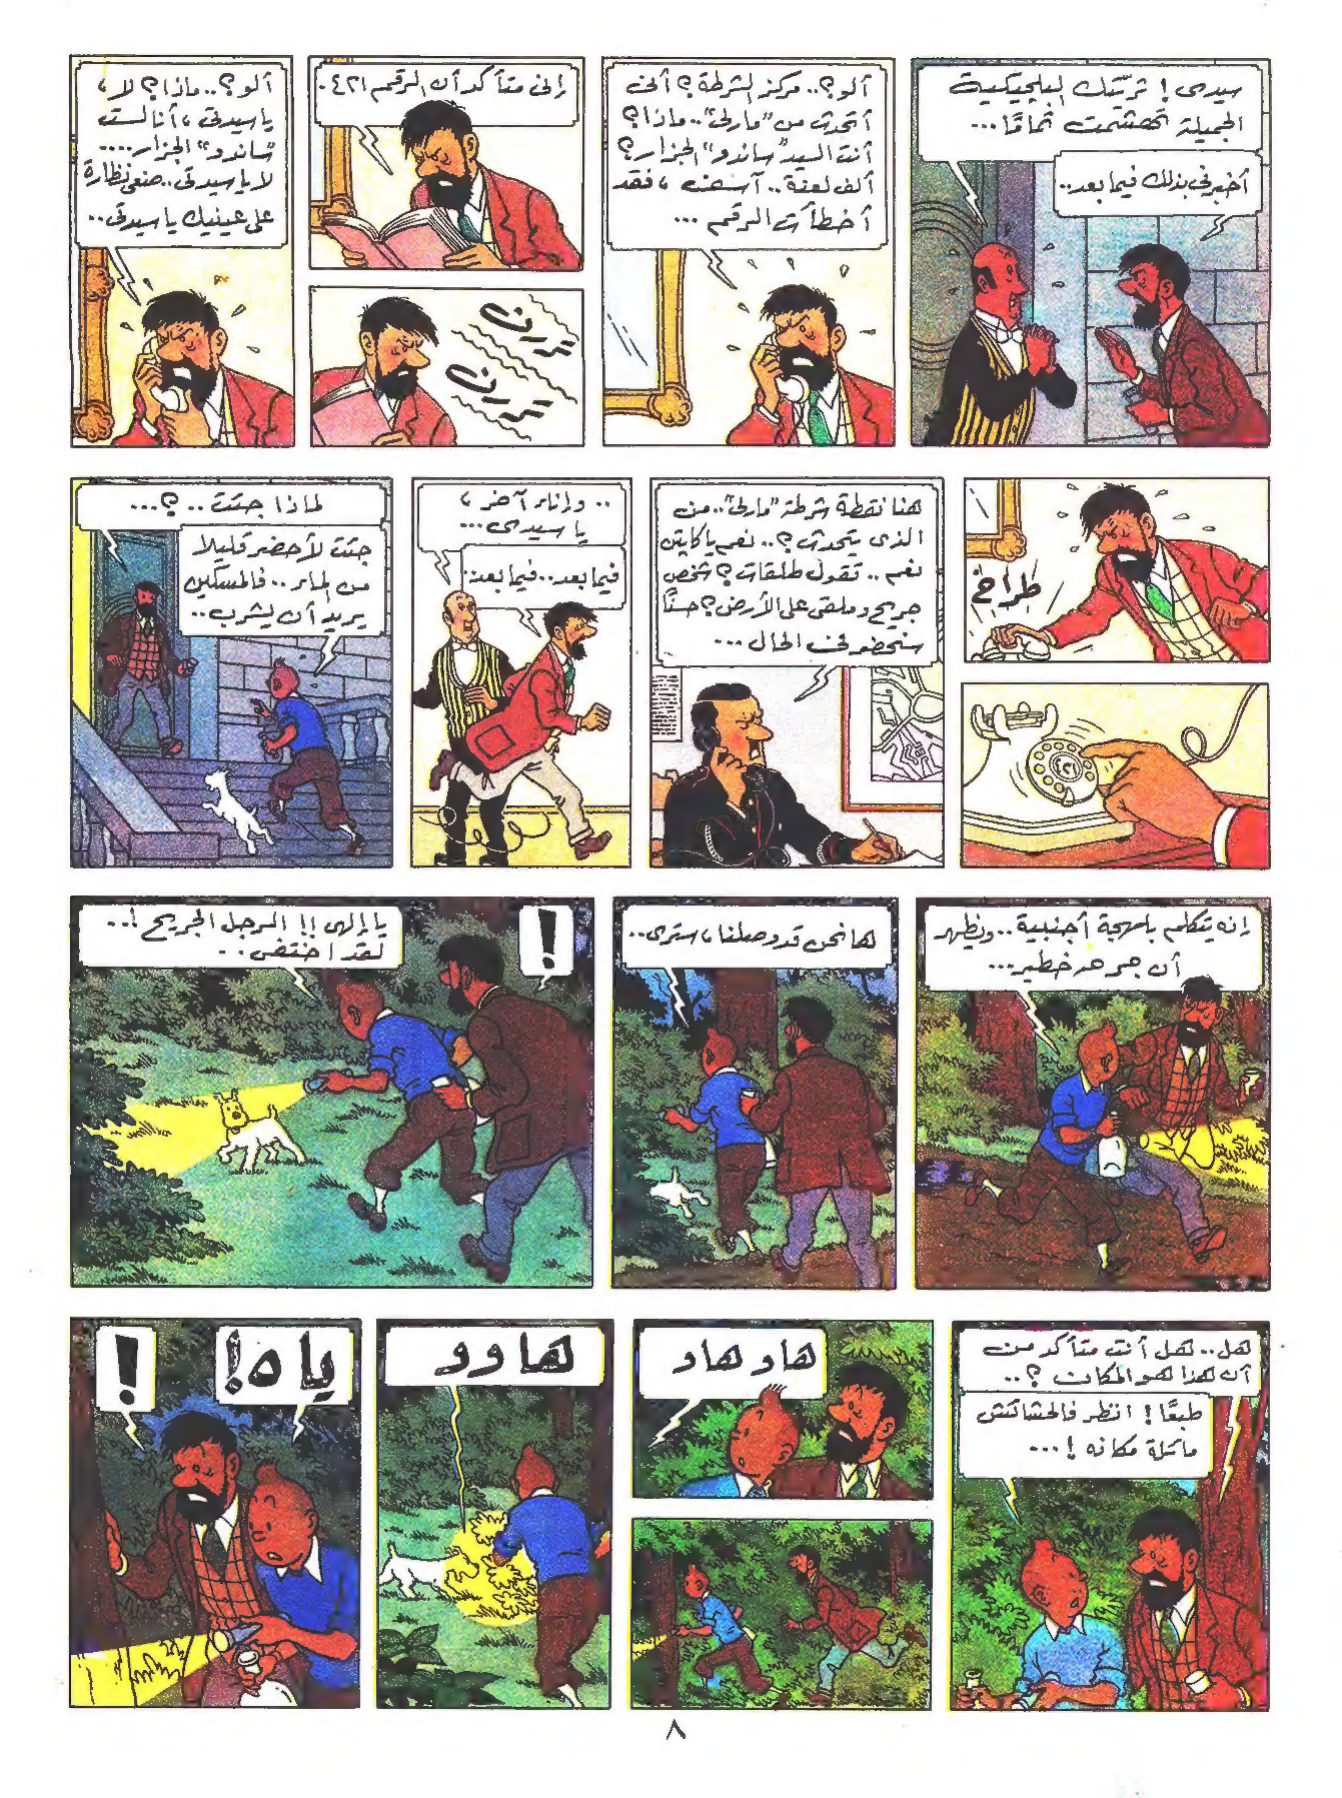 سيدى! ثريّتك البلجيكية
الجميلة تحشمت تمامًا...
أخبرنى بذلك فيما بعد..
ألو؟.. مركز الشرطة؟ ألى
أتحدث من "مارلى".. ماذا؟
أنت السيد "ساندو" الجزار؟
ألف لعنة.. آسف، فقد
أخطأت الرقم...
إنى متأكد أن الرقم ٤٢١.
يررن
يررن
ألو؟.. ماذا؟ لا،
يا سيدتى، أنا لست
"ساندو" الجزار....
لا يا سيدتى.. ضعى نظارة
على عينيك يا سيدتى..
طراخ
هنا نقطة شرطة "مارلى".. من
الذى يتحدث؟.. نعم يا كابتن
نعم.. تقول طلقات؟ شخص
جريح وملقى على الأرض؟ حسنًا
سنحضر فى الحال...
.. وإناء آخر،
يا سيدى...
فيما بعد.. فيما بعد..
لماذا جئت..؟...
جئت لأحضر قليلا
من الماء.. فالمسكين
يريد أن يشرب..
إنه يتكلم بلهجة أجنبية.. ويظهر
أن جرحه خطير...
ها نحن قد وصلنا، سترى..
!
يا إلهى!! الرجل الجريح!..
لقد اختفى..
هل.. هل أنت متأكد من
أن هذا هو المكان؟..
طبعًا! انظر فالحشائش
مائلة مكانه!...
هاو هاو
هاوو
ياه!
!
٨